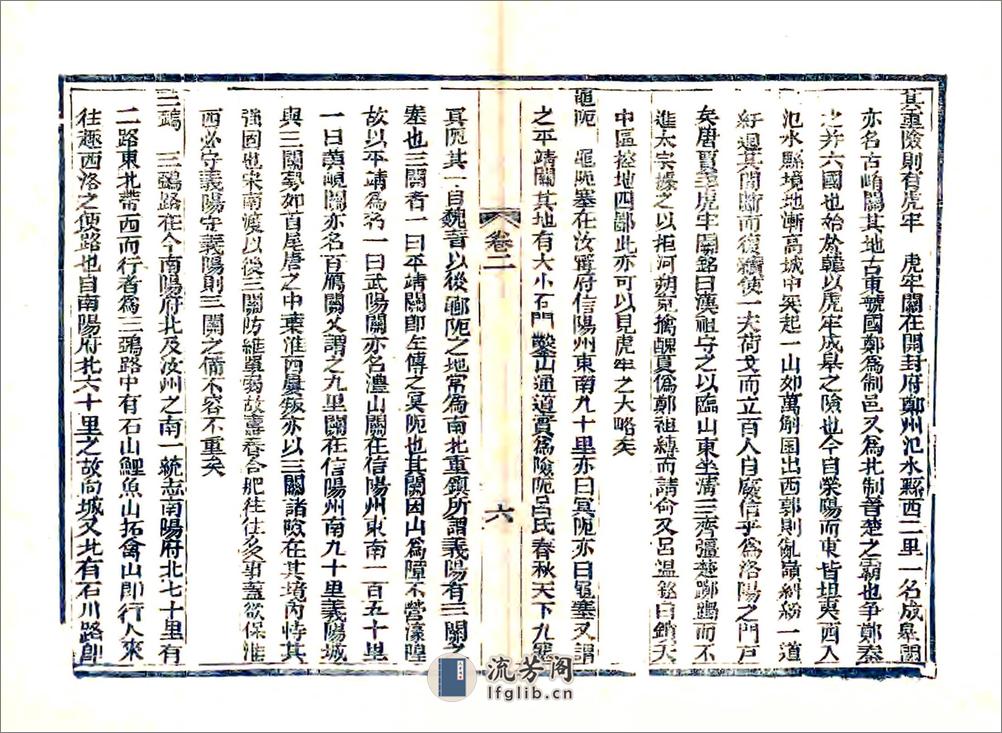 其重險則有虎牢　虎牢關在開封府鄭州汜水縣西二里一名成皐關
亦名古崤關其地古東虢國鄭爲制邑又爲北制晉楚之霸也爭鄭秦
之并六國也始於韓以虎牢成皐之險也今自滎陽而東皆坦夷西入
汜水縣境地漸高城中突起一山如萬斛囷出西郭則亂嶺糾紛一道
紆迴其間斷而復續使一夫荷戈而立百人自廢信乎爲洛陽之門戸
矣唐賈至虎牢關銘曰漢祖守之以臨山東坐清三齊彊楚躑躅而不
進太宗據之以拒河朔克擒醜夏僞鄭祖縛而請命又呂溫銘曰鎖天
中區控地四鄙此亦可以見虎牢之大略矣
黽阨　黽阨塞在汝寧府信陽州東南九十里亦曰冥阨亦曰黽塞又謂
之平靖關其地有大小石門鑿山通道實爲險阨呂氏春秋天下九塞
卷二　六
冥阨其一自魏晉以後鄳阨之地常爲南北重鎮所謂義陽有三關之
塞也三關者一曰平靖關卽左傳之冥阨也其關因山爲障不營濠隍
故以平靖爲名一曰武陽關亦名澧山關在信陽州東南一百五十里
一曰黃峴關亦名百鴈關又謂之九里關在信陽州南九十里義陽城
與三關勢如首尾唐之中葉淮西屢叛亦以三關諸險在其境內恃其
强固也宋南渡以後三關防維單弱故壽春合肥往往多事蓋欲保淮
西必守義陽守義陽則三關之備不容不重矣
三鵶　三鵶路在今南陽府北及汝州之南一統志南陽府北七十里有
二路東北帶西而行者爲三鵶路中有石山鯉魚山拓禽山卽行人來
往趣西洛之便路也自南陽府北六十里之故向城又北有石川路卽
流芳阁
lfglib.cn